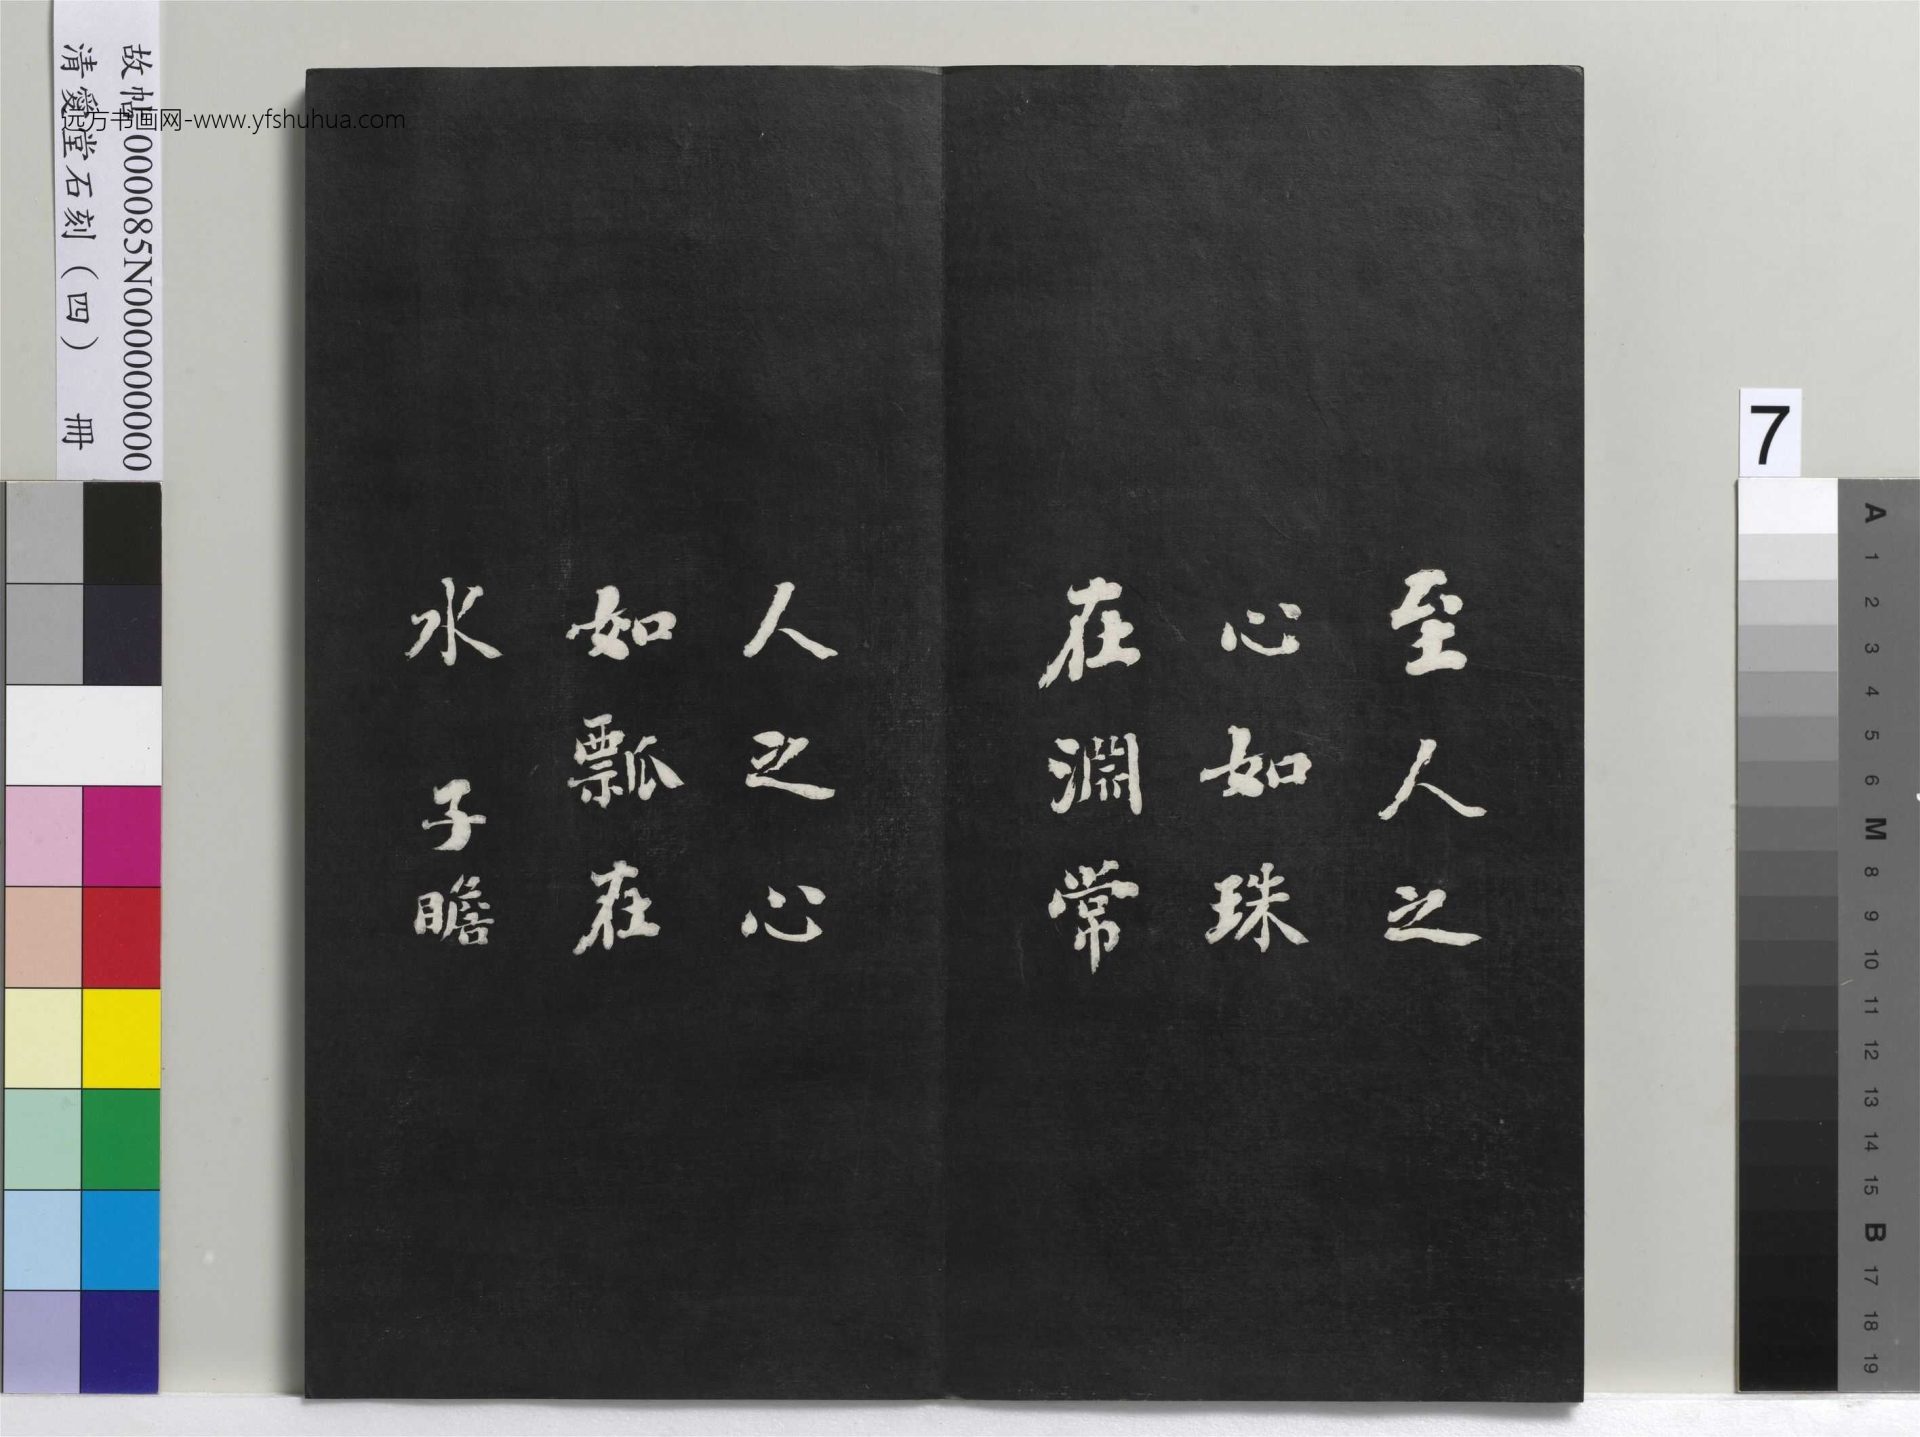 至人之
心如珠
在淵常
人之心
如瓢在
水 子瞻
故帖000085N000000000
清愛堂石刻（四） 冊
远方书画网-www.yfshuhua.com
7
A
1
2
3
4
5
6
M
8
9
10
11
12
13
14
15
B
17
18
19